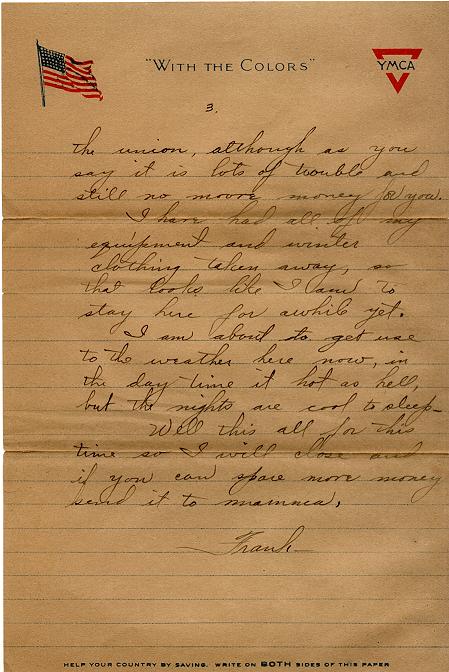 "WITH THE COLORS"
YMCA
3.
the union, although as you
say it is lots of trouble and
still no moore money for you.
I have had all of my
equipment and winter
clothing taken away, so
that looks like I am to
stay here for awhile yet.
I am about to get use
to the weather here now, in
the day time it hot as hell,
but the nights are cool to sleep-
Well this all for this
time so I will close and
if you can spare more money
send it to mamma,
Frank
HELP YOUR COUNTRY BY SAVING. WRITE ON BOTH SIDES OF THIS PAPER